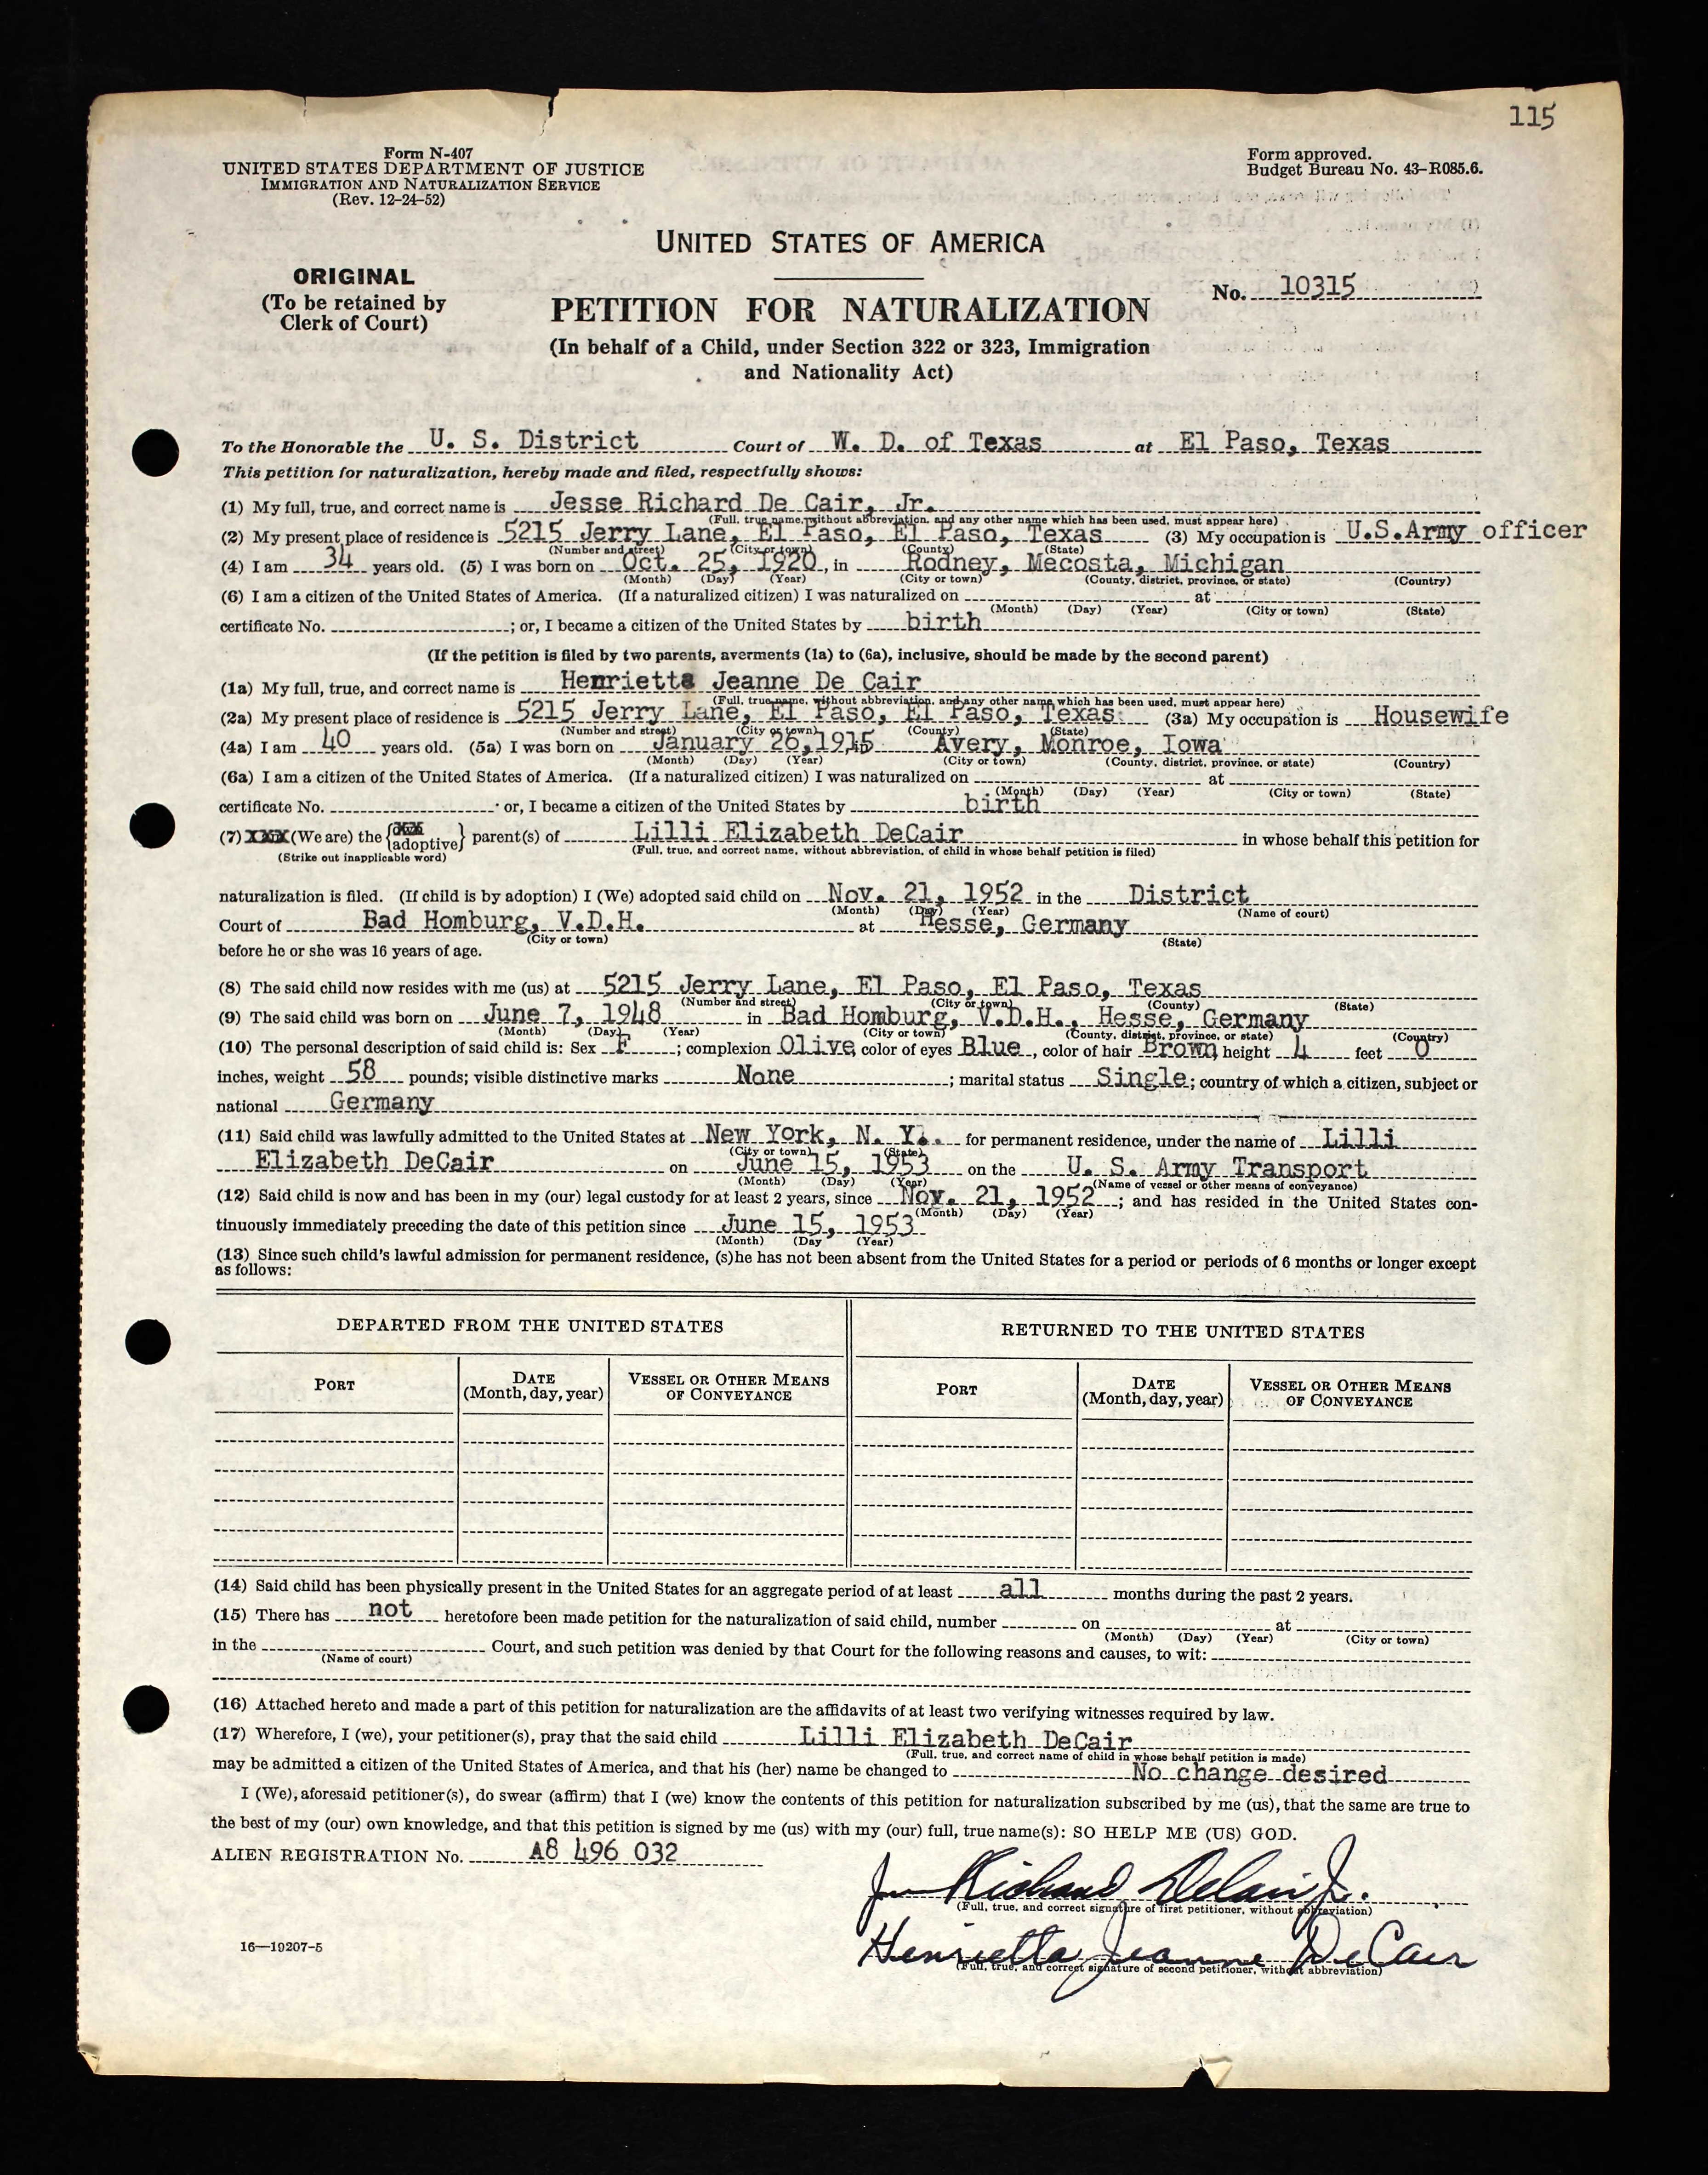 115
Form N-407
UNITED STATES DEPARTMENT OF JUSTICE
IMMIGRATION AND NATURALIZATION SERVICE
(Rev. 12-24-52)
Form approved.
Budget Bureau No. 43-R085.6.
UNITED STATES OF AMERICA
ORIGINAL
(To be retained by
Clerk of Court)
No. 10315
PETITION FOR NATURALIZATION
(In behalf of a Child, under Section 322 or 323, Immigration
and Nationality Act)
To the Honorable the U. S. District Court of W. D. of Texas at El Paso, Texas
This petition for naturalization, hereby made and filed, respectfully shows:
(1) My full, true, and correct name is Jesse Richard De Cair, Jr.
(Full, true name, without abbreviation, and any other name which has been used, must appear here)
(2) My present place of residence is 5215 Jerry Lane, El Paso, El Paso, Texas (3) My occupation is U.S.Army officer
(Number and street) (City or town) (County) (State)
(4) I am 34 years old. (5) I was born on Oct. 25, 1920, in Rodney, Mecosta, Michigan
(Month) (Day) (Year) (City or town) (County, district, province, or state) (Country)
(6) I am a citizen of the United States of America. (If a naturalized citizen) I was naturalized on at
(Month) (Day) (Year) (City or town) (State)
certificate No. ; or, I became a citizen of the United States by birth
(If the petition is filed by two parents, averments (1a) to (6a), inclusive, should be made by the second parent)
(1a) My full, true, and correct name is Henrietta Jeanne De Cair
(Full, true name, without abbreviation, and any other name which has been used, must appear here)
(2a) My present place of residence is 5215 Jerry Lane, El Paso, El Paso, Texas (3a) My occupation is Housewife
(Number and street) (City or town) (County) (State)
(4a) I am 40 years old. (5a) I was born on January 26,1915 Avery, Monroe, Iowa
(Month) (Day) (Year) (City or town) (County, district, province, or state) (Country)
(6a) I am a citizen of the United States of America. (If a naturalized citizen) I was naturalized on at
(Month) (Day) (Year) (City or town) (State)
certificate No. or, I became a citizen of the United States by birth
(7) XXX (We are) the {XX adoptive} parent(s) of Lilli Elizabeth DeCair in whose behalf this petition for
(Strike out inapplicable word) (Full, true, and correct name, without abbreviation, of child in whose behalf petition is filed)
naturalization is filed. (If child is by adoption) I (We) adopted said child on Nov. 21, 1952 in the District
(Month) (Day) (Year) (Name of court)
Court of Bad Homburg, V.D.H. at Hesse, Germany
(City or town) (State)
before he or she was 16 years of age.
(8) The said child now resides with me (us) at 5215 Jerry Lane, El Paso, El Paso, Texas
(Number and street) (City or town) (County) (State)
(9) The said child was born on June 7, 1948 in Bad Homburg, V.D.H., Hesse, Germany
(Month) (Day) (Year) (City or town) (County, district, province, or state) (Country)
(10) The personal description of said child is: Sex F ; complexion Olive, color of eyes Blue, color of hair Brown, height 4 feet 0
inches, weight 58 pounds; visible distinctive marks None ; marital status Single; country of which a citizen, subject or
national Germany
(11) Said child was lawfully admitted to the United States at New York, N. Y. for permanent residence, under the name of Lilli
(City or town) (State)
Elizabeth DeCair on June 15, 1953 on the U. S. Army Transport
(Month) (Day) (Year) (Name of vessel or other means of conveyance)
(12) Said child is now and has been in my (our) legal custody for at least 2 years, since Nov. 21, 1952 ; and has resided in the United States con-
(Month) (Day) (Year)
tinuously immediately preceding the date of this petition since June 15, 1953
(Month) (Day (Year)
(13) Since such child's lawful admission for permanent residence, (s)he has not been absent from the United States for a period or periods of 6 months or longer except
as follows:
DEPARTED FROM THE UNITED STATES RETURNED TO THE UNITED STATES
PORT DATE (Month, day, year) VESSEL OR OTHER MEANS OF CONVEYANCE PORT DATE (Month, day, year) VESSEL OR OTHER MEANS OF CONVEYANCE
(14) Said child has been physically present in the United States for an aggregate period of at least all months during the past 2 years.
(15) There has not heretofore been made petition for the naturalization of said child, number on at
(Month) (Day) (Year) (City or town)
in the Court, and such petition was denied by that Court for the following reasons and causes, to wit:
(Name of court)
(16) Attached hereto and made a part of this petition for naturalization are the affidavits of at least two verifying witnesses required by law.
(17) Wherefore, I (we), your petitioner(s), pray that the said child Lilli Elizabeth DeCair
(Full, true, and correct name of child in whose behalf petition is made)
may be admitted a citizen of the United States of America, and that his (her) name be changed to No change desired
I (We), aforesaid petitioner(s), do swear (affirm) that I (we) know the contents of this petition for naturalization subscribed by me (us), that the same are true to
the best of my (our) own knowledge, and that this petition is signed by me (us) with my (our) full, true name(s): SO HELP ME (US) GOD.
ALIEN REGISTRATION No. A8 496 032
Richard DeCair Jr.
(Full, true, and correct signature of first petitioner, without abbreviation)
Henrietta Jeanne DeCair
(Full, true, and correct signature of second petitioner, without abbreviation)
16—19207-5